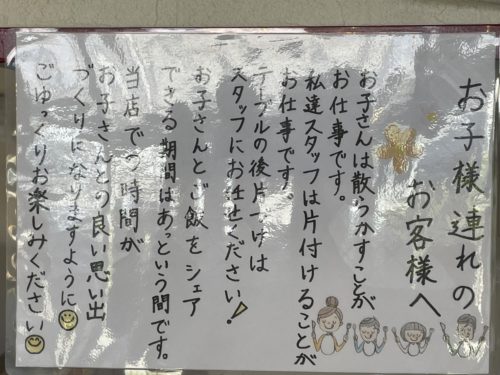 お子様連れの
お客様へ
お子さんは散らかすことが
お仕事です。
私達スタッフは片付けることが
お仕事です。
テーブルの後片づけは
スタッフにお任せください!
お子さんとご飯をシェア
できる期間はあっという間です。
当店での時間が
お子さんとの良い思い出
づくりになりますように
ごゆっくりお楽しみください